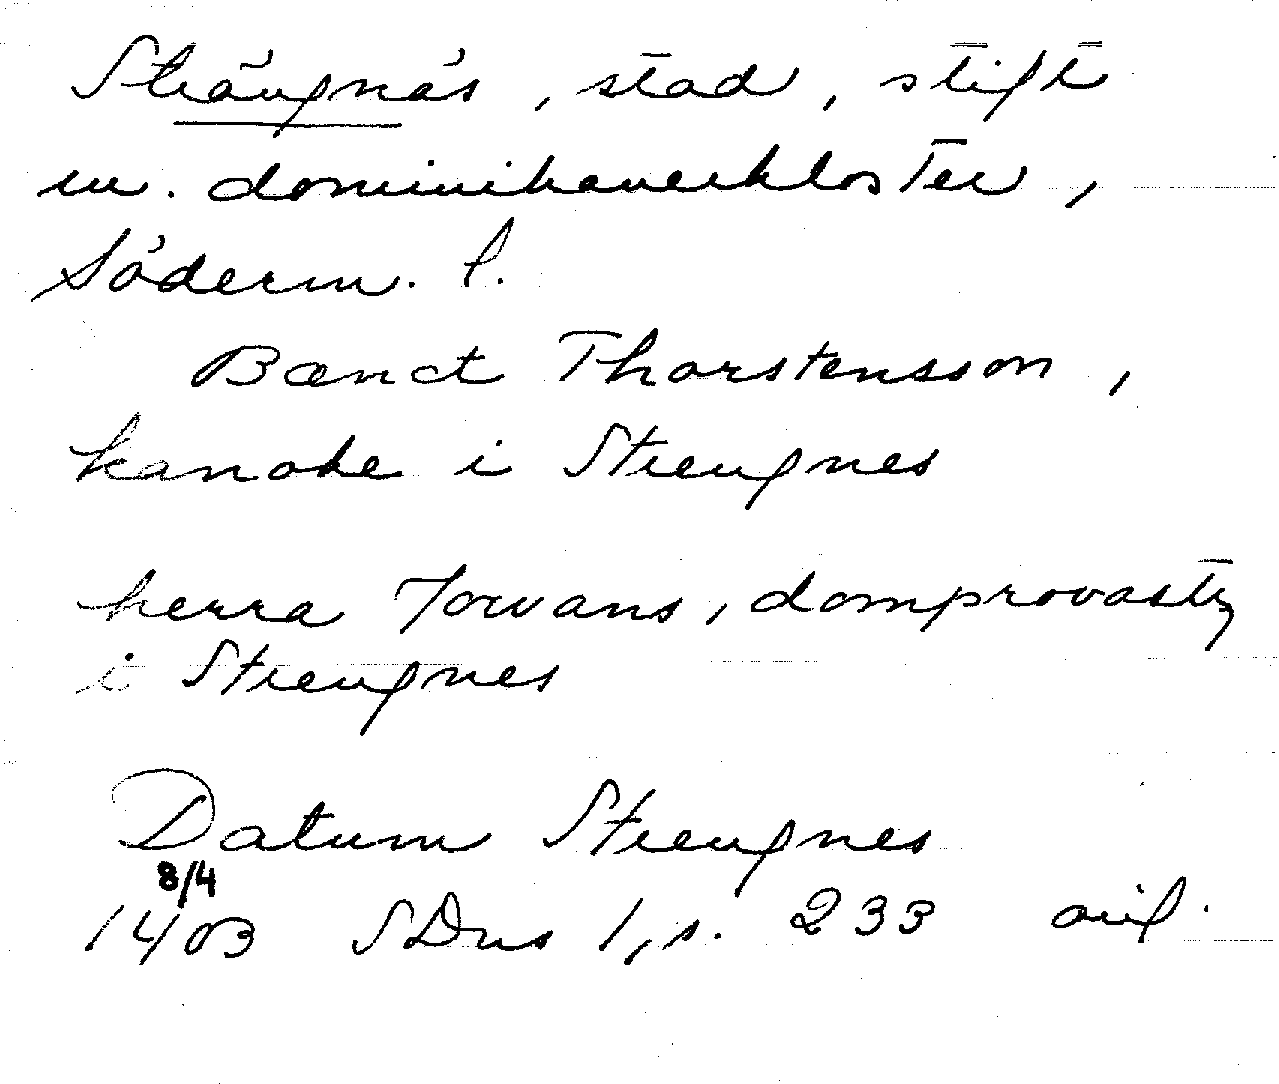 Strängnäs, stad, stift
m. dominikanerkloster,
Söderm. l.
Bænct Thorstensson,
kanoke i Strengnes
herra Jowans, domprovastz
i Strengnes
Datum Strengnes
8/4
1403 SDns 1, s. 233 avil.